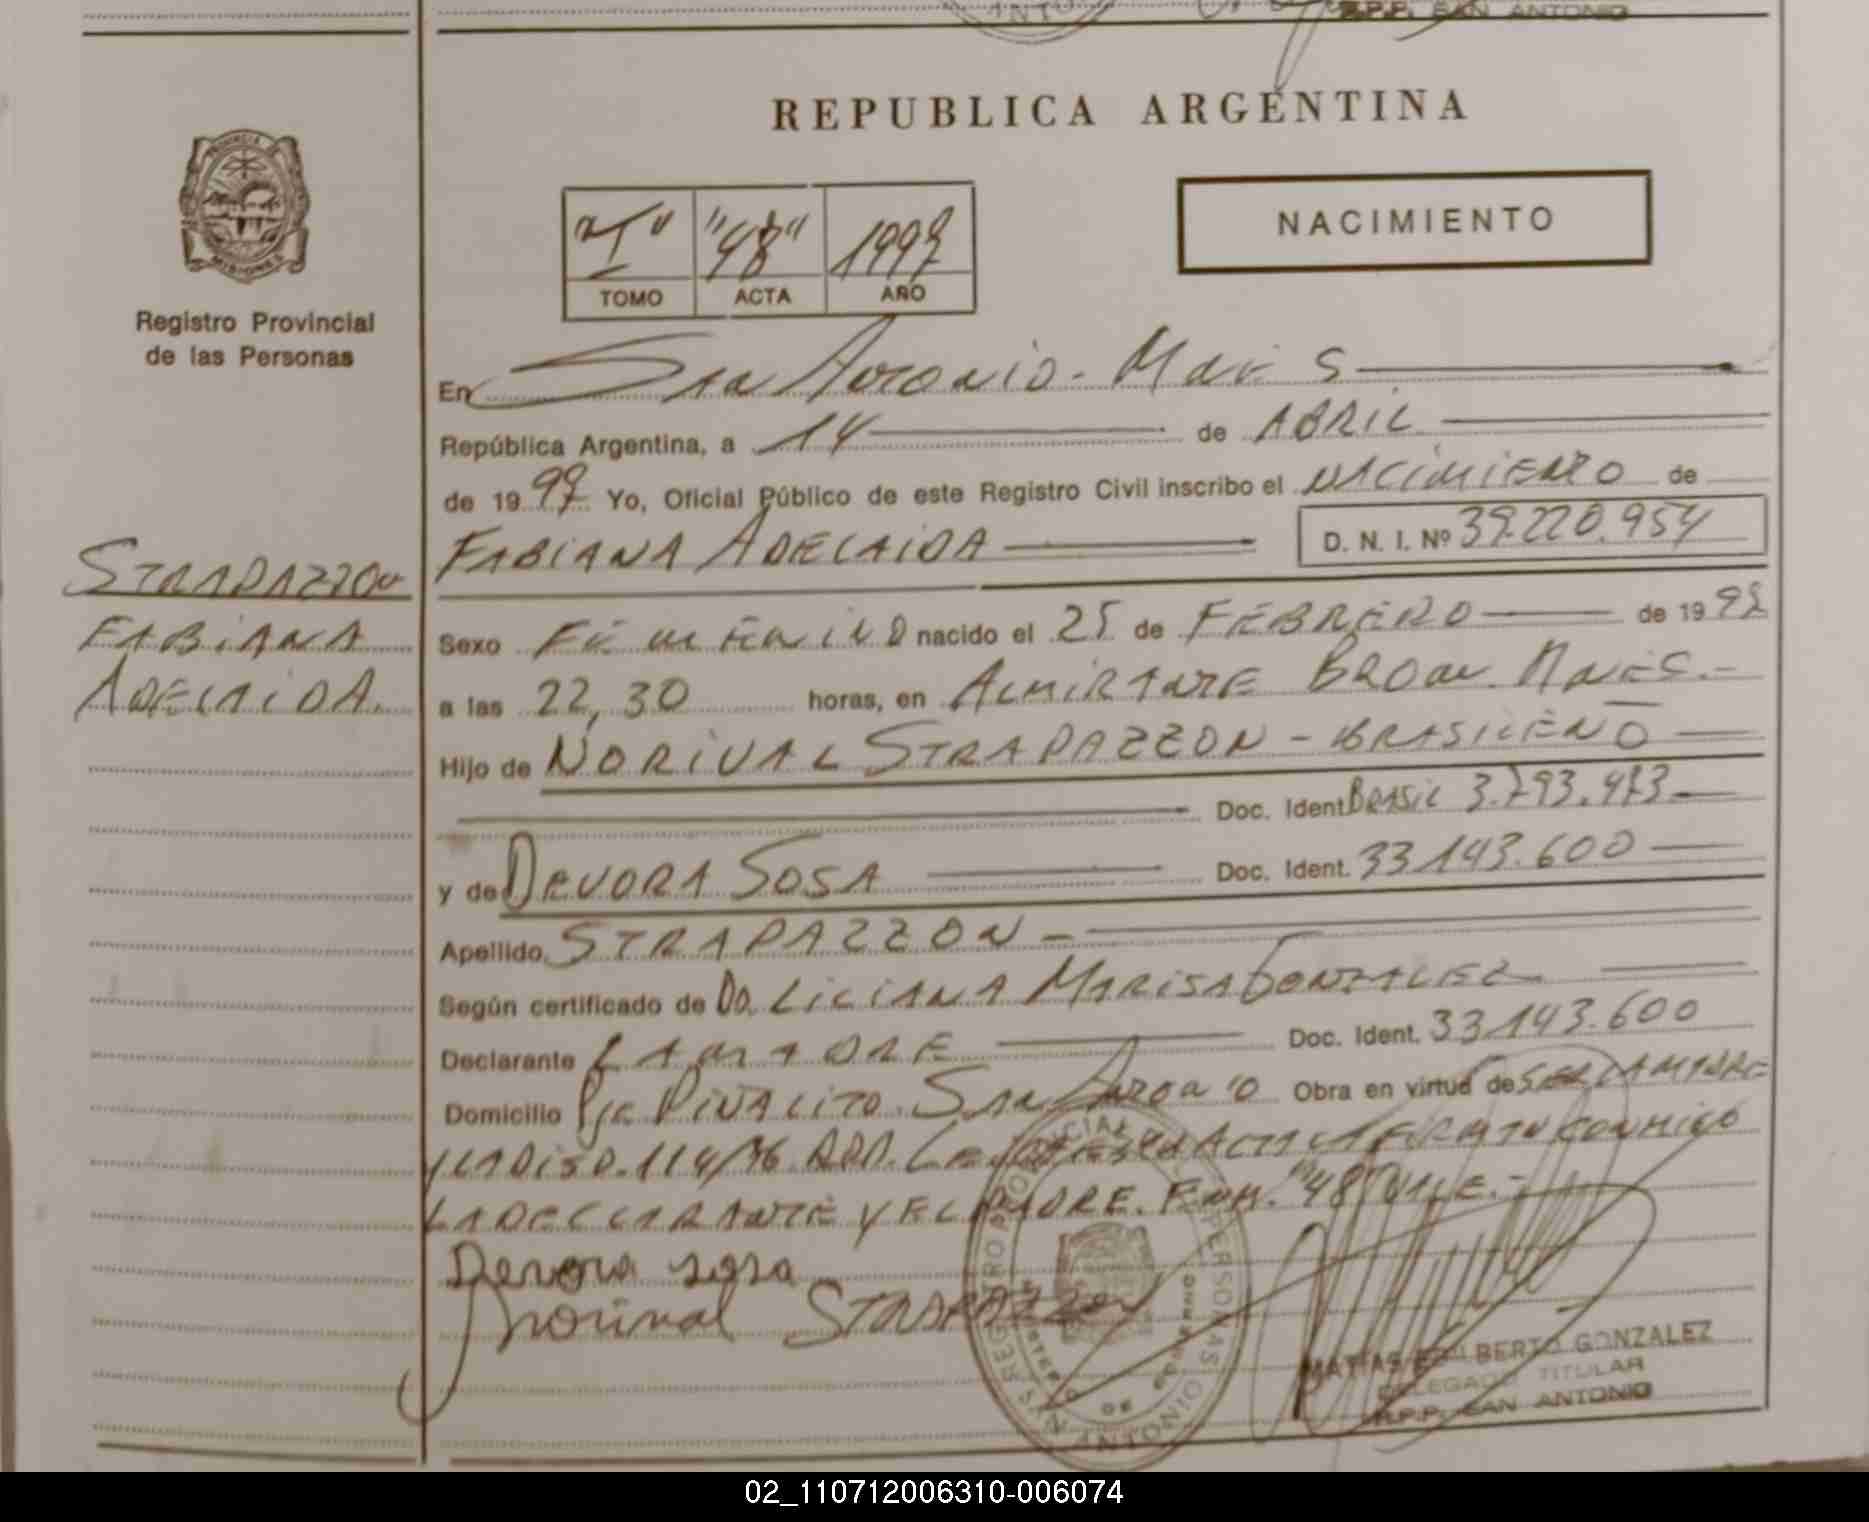 R.P.P. SAN ANTONIO
REPUBLICA ARGENTINA
"I" "48" 1997
TOMO ACTA AÑO
NACIMIENTO
Registro Provincial
de las Personas
En San Antonio - Mnes
República Argentina, a 14 de ABRIL
de 1997 Yo, Oficial Público de este Registro Civil inscribo el NACIMIENTO de
FABIANA ADELAIDA D. N. I. Nº 39.220.954
STRAPAZZON
FABIANA
ADELAIDA.
Sexo FEMENINO nacido el 25 de FEBRERO de 199
a las 22,30 horas, en ALMIRANTE BROWN MNES.-
Hijo de NORIVAL STRAPAZZON - BRASILEÑO
Doc. Ident. Brasil 3.793.473
y de DEVORA SOSA Doc. Ident. 33.143.600
Apellido STRAPAZZON -
Según certificado de Da. LILIANA MARISA GONZALEZ
Declarante LA MADRE Doc. Ident. 33.143.600
Domicilio Pje PIÑALITO. San Antonio Obra en virtud de SER LA MADRE
Y LA DISP. 114/96 RPP. LEIDA ESTA ACTA LA FIRMAN CONMIGO
LA DECLARANTE Y EL PADRE. ENM. "48" VALE.-
Devora sosa
Norival STRAPAZZON
REGISTRO PROVINCIAL DE LAS PERSONAS
SAN ANTONIO
MINISTERIO DE GOBIERNO
MATIAS ALBERTO GONZALEZ
DELEGADO TITULAR
R.P.P. SAN ANTONIO
02_110712006310-006074